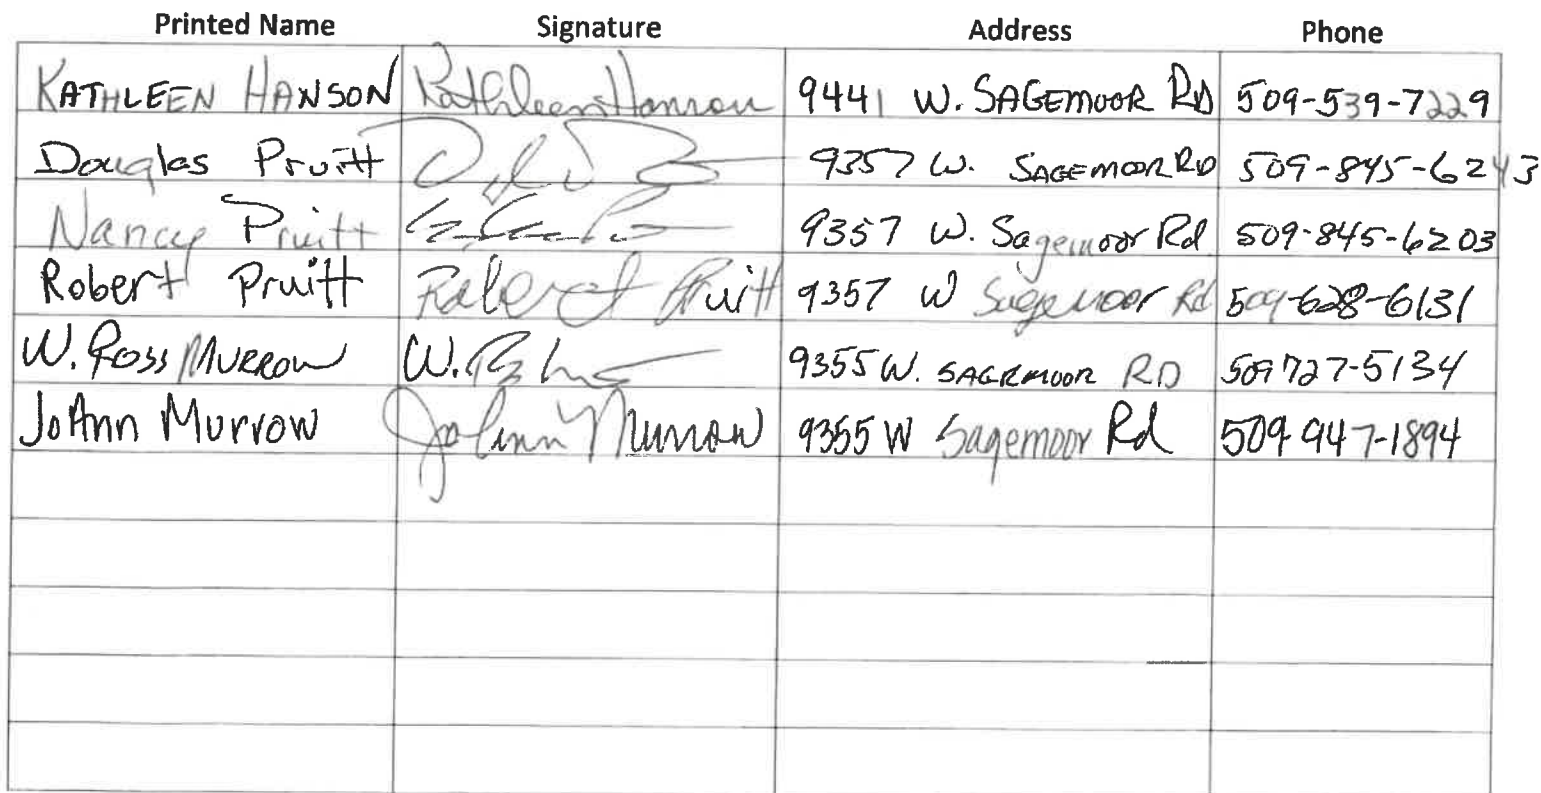 Printed Name Signature Address Phone
KATHLEEN HANSON Kathleen Hanson 9441 W. SAGEMOOR RD 509-539-7229
Douglas Pruitt 9357 W. SAGEMOOR RD 509-845-6243
Nancy Pruitt 9357 W. Sagemoor Rd 509-845-6203
Robert Pruitt Robert Pruitt 9357 W Sagemoor Rd 509-628-6131
W. ROSS MURROW W. 9355 W. SAGEMOOR RD 509 727-5134
JoAnn Murrow JoAnn Murrow 9355 W Sagemoor Rd 509 947-1894